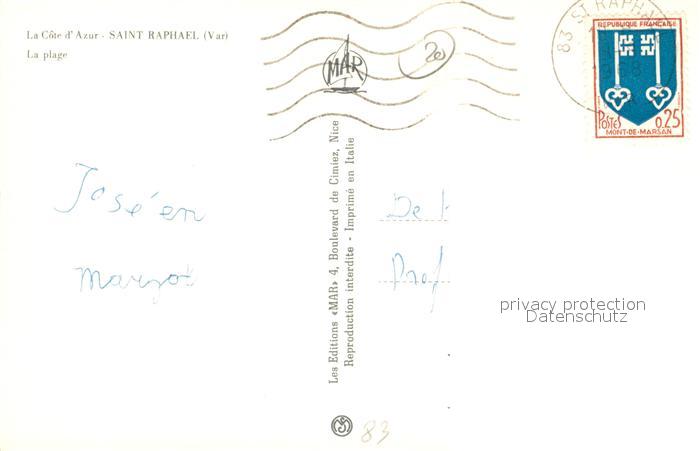 La Côte d'Azur - SAINT RAPHAEL (Var)
La plage
MAR
20
83 ST RAPHA
1968
REPUBLIQUE FRANÇAISE
POSTES 0.25
MONT-DE-MARSAN
José en
Margot
De
Prof
Les Editions «MAR» 4, Boulevard de Cimiez, Nice
Reproduction interdite - Imprimé en Italie
privacy protection
Datenschutz
83